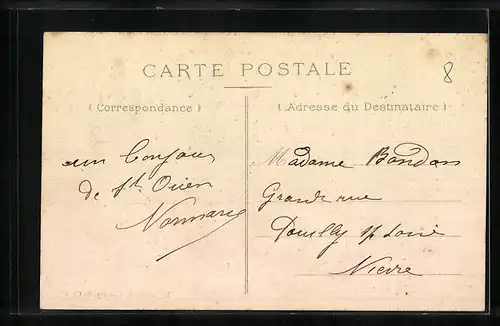 8
CARTE POSTALE
(Correspondance)
(Adresse du Destinataire)
un bonjour
de St Ouen
Madame Baudon
Grande rue
Pouilly s/ Loire
Nièvre